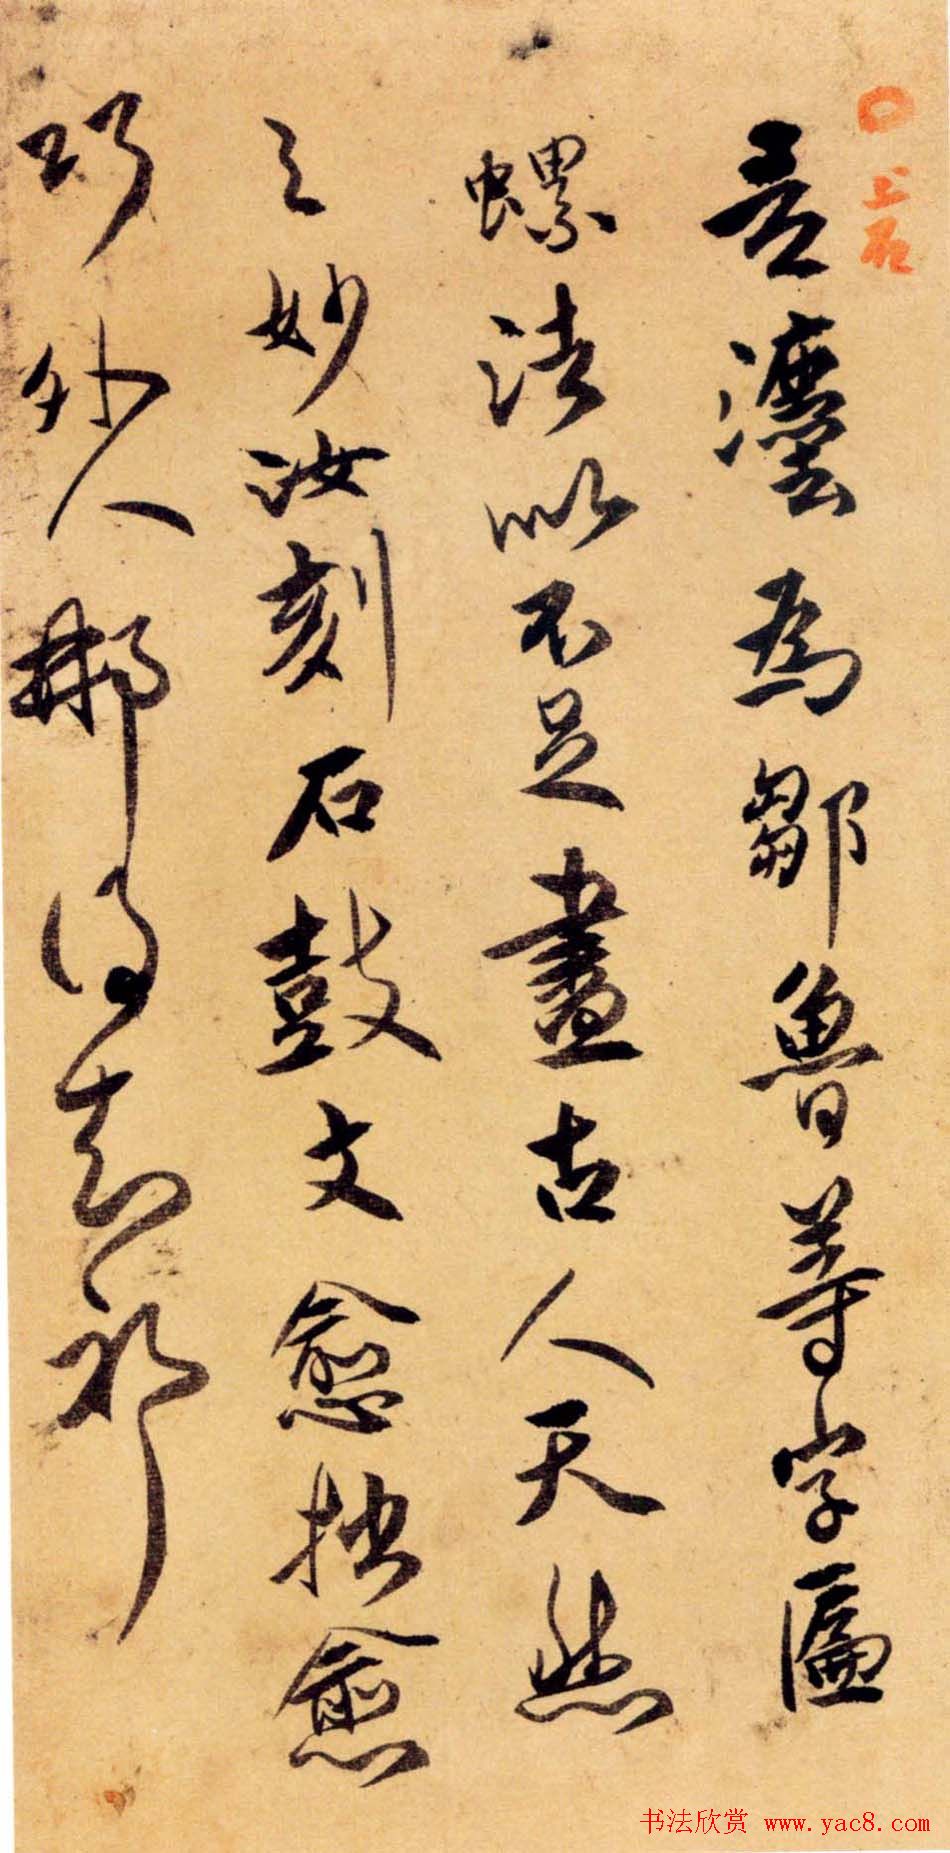 上石
吾灋為鄒魯等字匾
螺法似不足盡古人天然
之妙汝刻石鼓文愈拙愈
巧外人那得知耶
书法欣赏 www.yac8.com